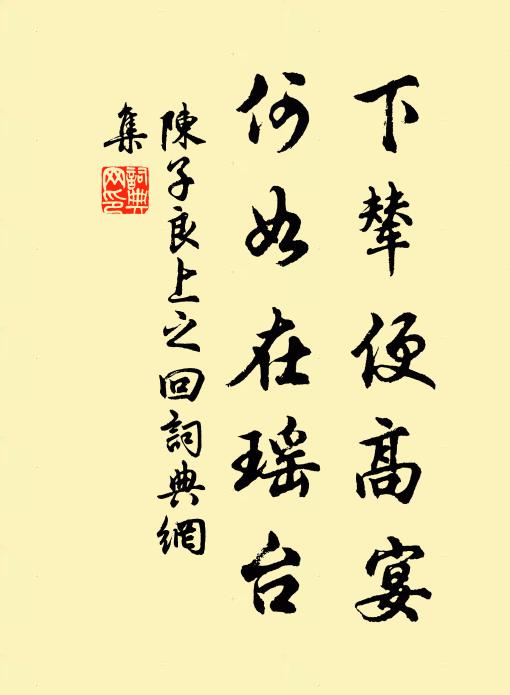 下輦便高宴
何如在瑶台
陳子良上之回詞典網
集
詞典
网印